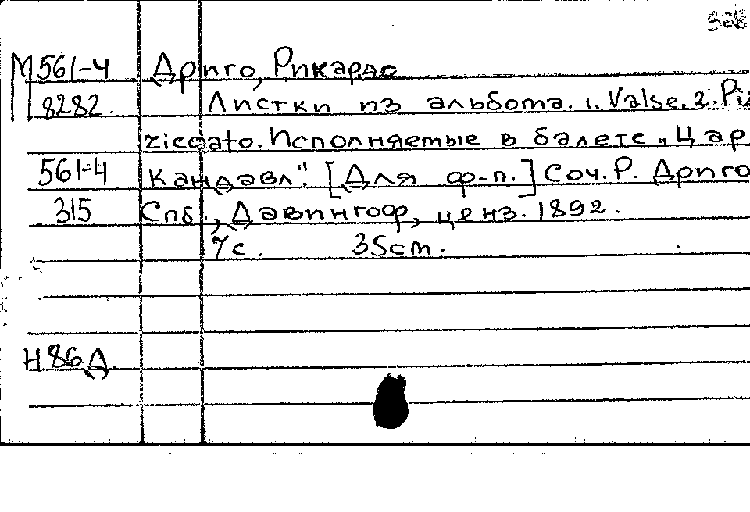 М 561-4 Дриго, Рикардо
8282. Листки из альбома. 1. Valse. 2. Piz
zicoato. Исполняемые в балете „Цар
561-4 Кандавл". [Для ф-п.] Соч. Р. Дриго
315 Спб., Давингоф, ценз. 1892.
7с. 35cm.
Н86Д